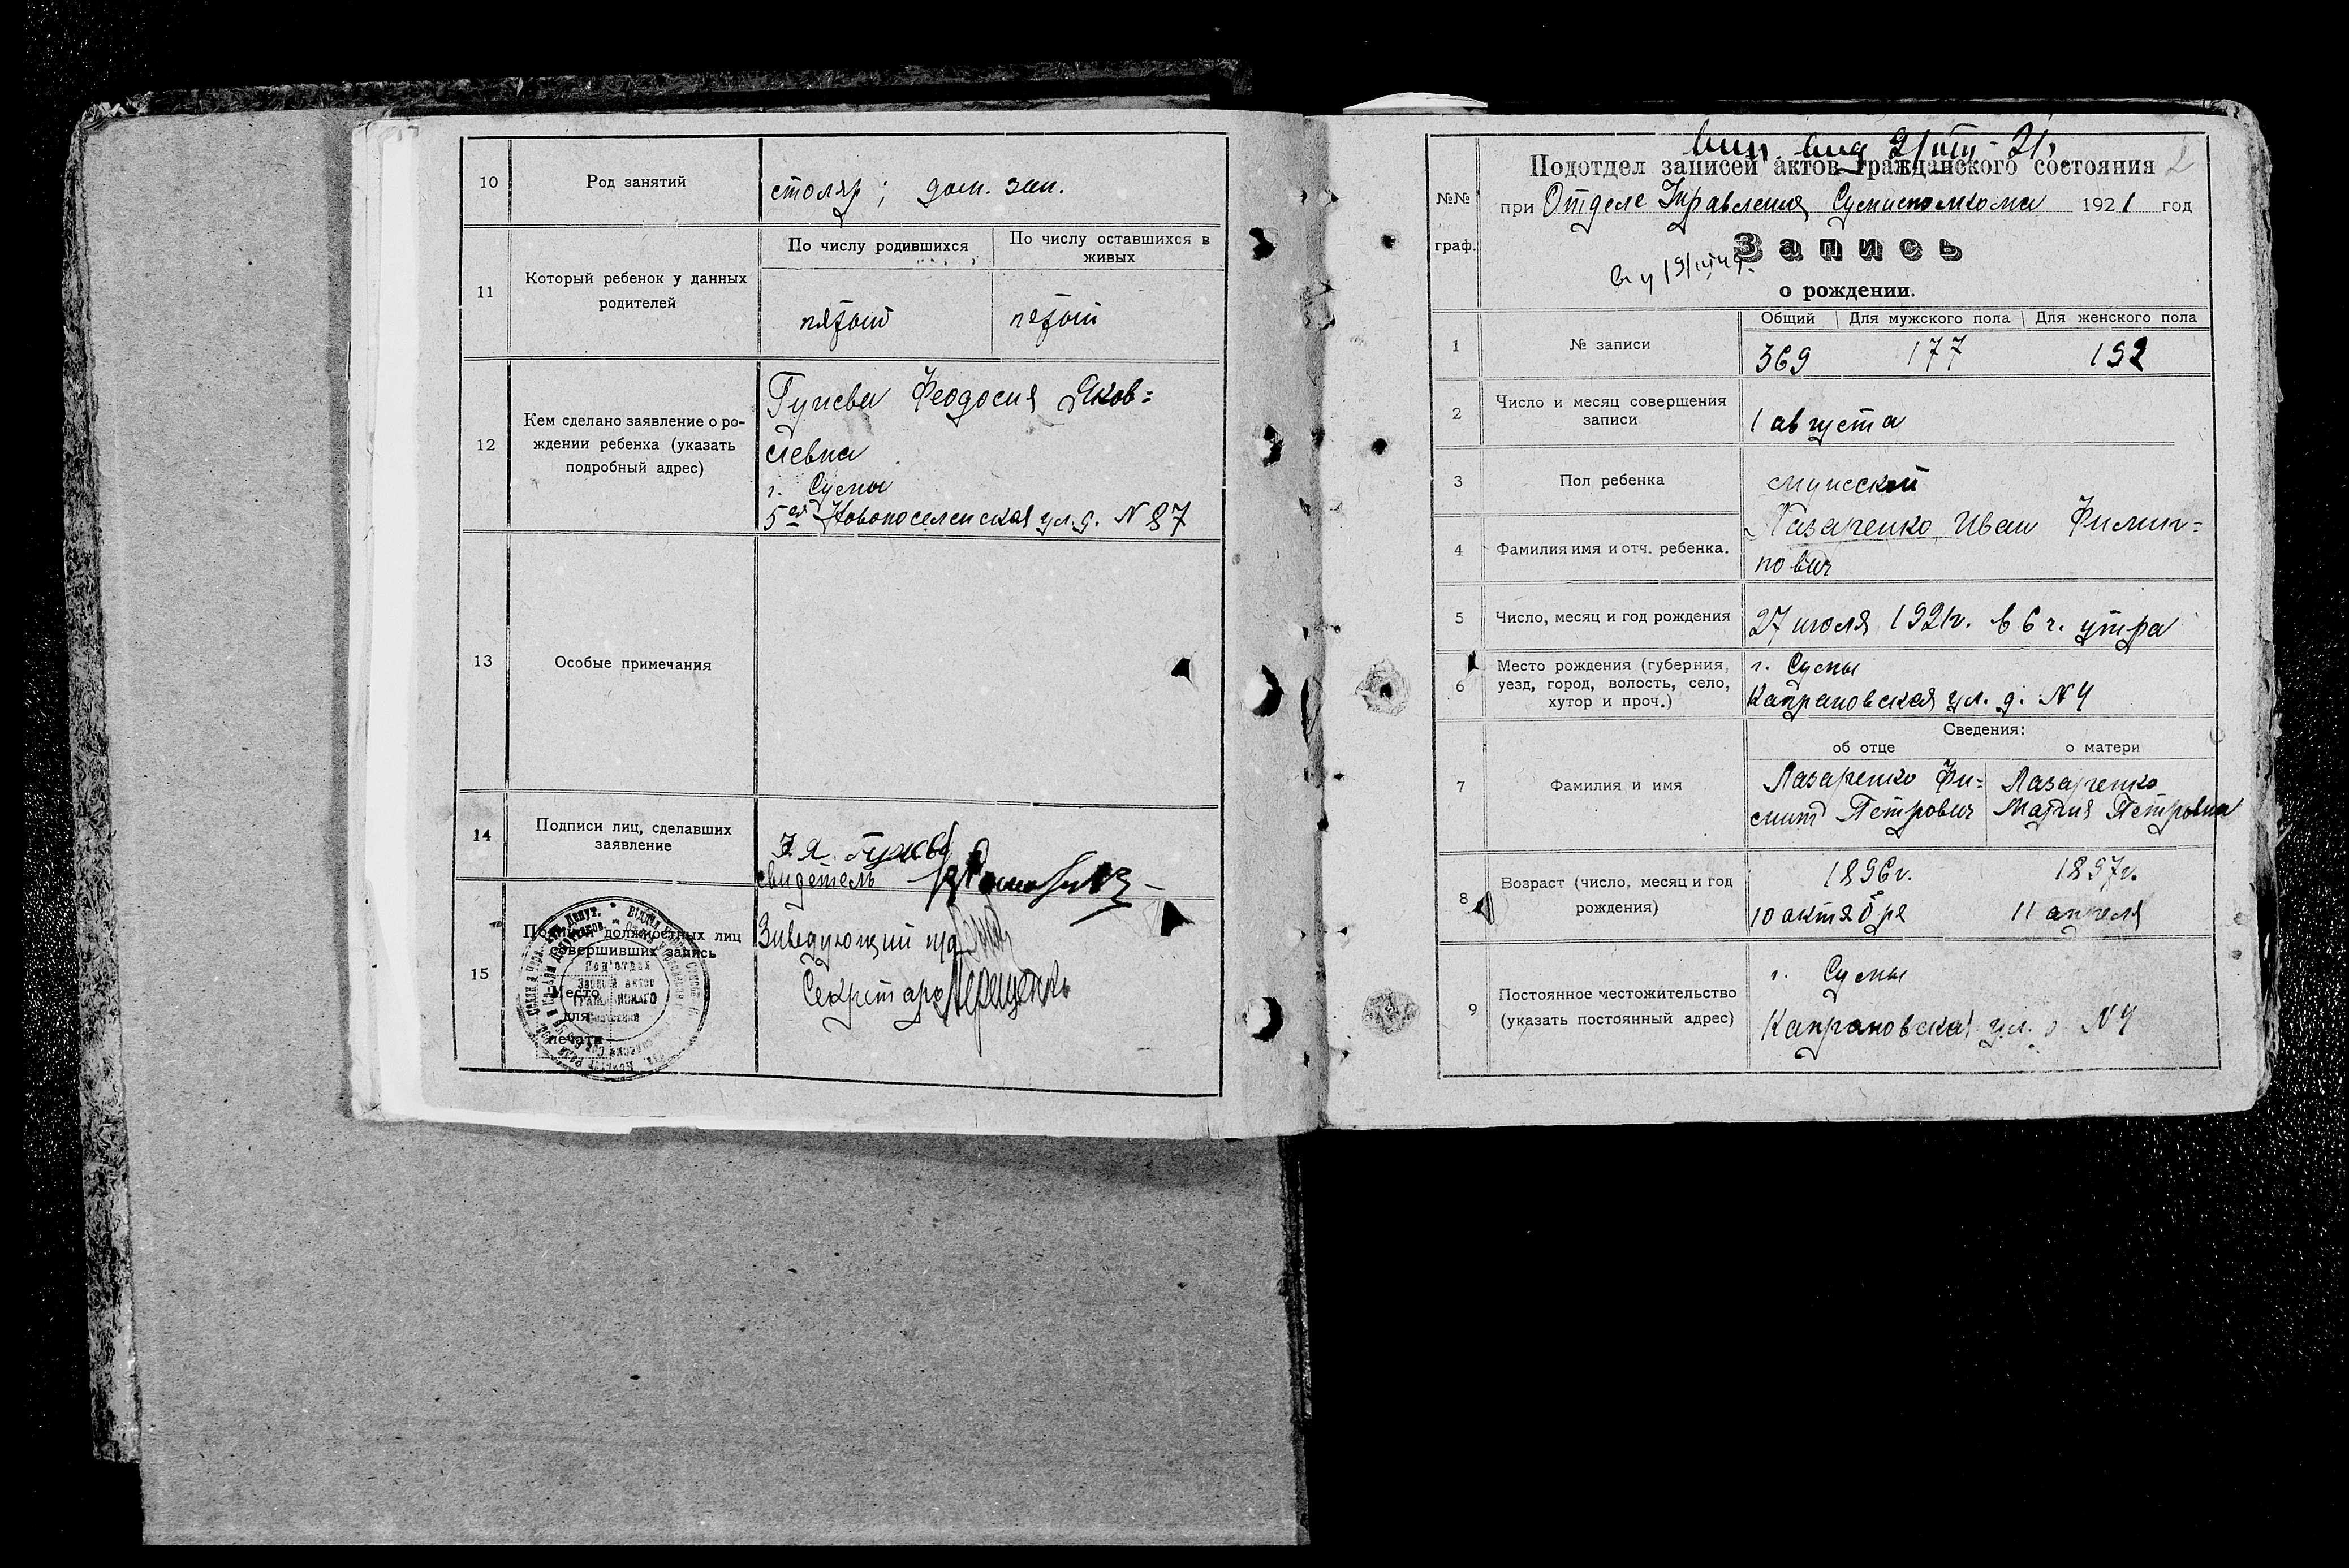 10
Род занятий
столяр; дом. зан.
11
Который ребенок у данных
родителей
По числу родившихся
По числу оставшихся в
живых
пятый
пятый
12
Кем сделано заявление о ро-
ждении ребенка (указать
подробный адрес)
Феодосия Яков=
левна
г. Сумы
5ая Новопоселенская ул. д. N 87
13
Особые примечания
14
Подписи лиц, сделавших
заявление
Свидетель
15
Подписи должностных лиц
совершивших запись
Место
для
печати
Заведующий п/о
Секретарь
№№
граф.
Подотдел записей актов гражданского состояния
при Отделе Управления Сумисполкома 1921 год
Запись
о рождении.
1
№ записи
Общий
Для мужского пола
Для женского пола
369
177
192
2
Число и месяц совершения
записи
1 августа
3
Пол ребенка
мужской
4
Фамилия имя и отч. ребенка.
Лазаренко Иван Филип=
пович
5
Число, месяц и год рождения
27 июля 1921г. в 6 ч. утра
6
Место рождения (губерния,
уезд, город, волость, село,
хутор и проч.)
г. Сумы
Капрановская ул. д. N 4
Сведения:
об отце
о матери
7
Фамилия и имя
Лазаренко Фи=
липп Петрович
Лазаренко
Мария Петровна
8
Возраст (число, месяц и год
рождения)
1896г.
10 октября
1897г.
11 апреля
9
Постоянное местожительство
(указать постоянный адрес)
г. Сумы
Капрановская ул. д N 4